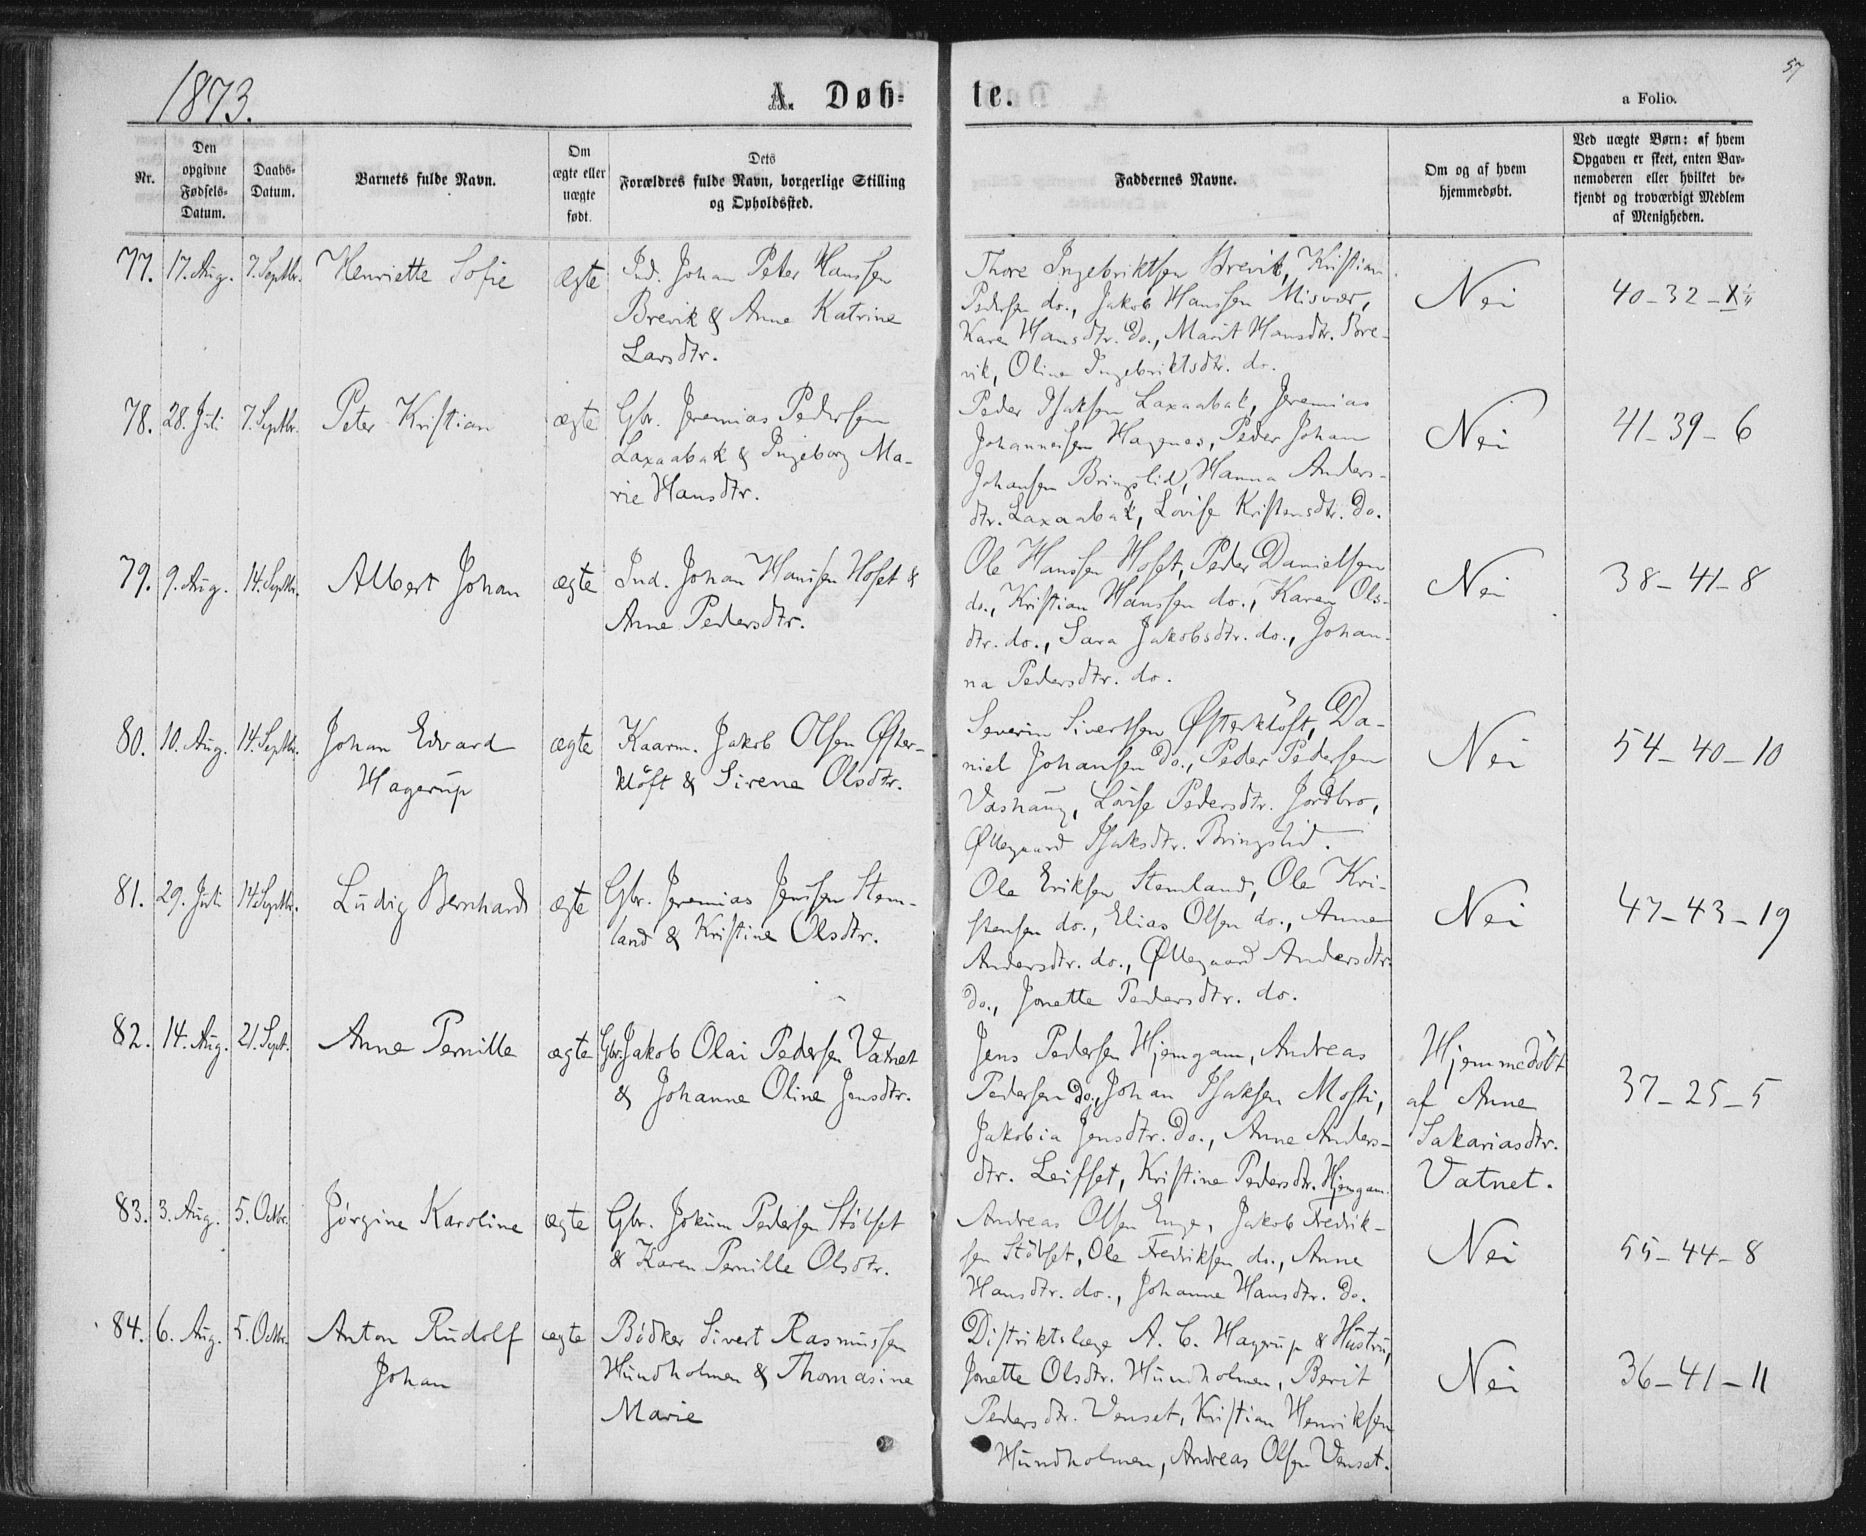 1873.
A. Døb-
te.
a Folio.
57
Nr.
Den
opgivne
Fødsels-
Datum.
Daabs-
Datum.
Barnets fulde Navn.
Om
ægte eller
uægte
født.
Dets
Forældres fulde Navn, borgerlige Stilling
og Opholdssted.
Faddernes Navne.
Om og af hvem
hjemmedøbt.
Ved uægte Børn: af hvem
Opgaven er skeet, enten Bar-
nemoderen eller hvilket be-
kjendt og troværdigt Medlem
af Menigheden.
77. 17. Aug. 7. Septbr. Henriette Sofie ægte
Ind. Johan Peter Hanssen
Brevik & Anne Katrine
Larsdtr.
Thore Ingebriktsen Brevik, Kristian
Pedersen do., Jakob Hanssen Misvær,
Karen Hansdtr. Do., Marit Hansdtr. Bre-
vik, Oline Ingebriktsdtr. do.
Nei
40-32-
78. 28. Juli 7. Septbr. Peter Kristian ægte
Gbr. Jeremias Pedersen
Laxaabak & Ingeborg Ma-
rie Hansdtr.
Peder Isaksen Laxaabak, Jeremias
Johannessen Hagnes, Peder Johan
Johansen Bringslid, Hanna Anders-
dtr. Laxaabak, Lovise Kristensdtr. Do.
Nei
41-39-6
79. 9. Aug. 14. Septbr. Albert Johan ægte
Ind. Johan Hansen Hoset &
Anne Pedersdtr.
Ole Hanssen Hoset, Peder Danielsen
do., Kristian Hanssen do., Karen Ols-
dtr. do., Sara Jakobsdtr. do., Johan-
na Pedersdtr. do.
Nei
38-41-8
80. 10. Aug. 14. Septbr. Johan Edvard
Hagerup
ægte
Kaarm. Jakob Olsen Øster-
kløft & Sirene Olsdtr.
Severin Sivertsen Østerkløft, Da-
niel Johansen Do., Peder Pedersen
Vashaug, Lovise Pedersdtr. Jordbro,
Øllegaard Isaksdtr. Bringslid.
Nei
54-40-10
81. 29. Juli 14. Septbr. Ludig Bernhard ægte
Gbr. Jeremias Jenssen Stem-
land & Kristine Olsdtr.
Ole Eriksen Stemland, Ole Kri-
stensen do., Elias Olsen do., Anne
Andersdtr. do., Øllegaard Andersdtr.
Do., Jonette Pedersdtr. do.
Nei
47-43-19
82. 14. Aug. 21. Septbr. Anne Pernille ægte
Gbr. Jakob Olai Pedersen Vatnet
& Johanne Oline Jensdtr.
Jens Pedersen Hjemgam, Andreas
Pedersen Do., Johan Isaksen Mosti,
Jakobia Jensdtr. Do., Anne Anders-
dtr. Leifset, Kristine Pedersdtr. Hjemgam.
Hjemmedøbt
af Anne
Sakariasdtr.
Vatnet.
37-25-5
83. 3. Aug. 5. Octbr. Jørgine Karoline ægte
Gbr. Jokum Pedersen Stølset
& Karen Pernille Olsdtr.
Andreas Olsen Enge, Jakob Fredrik-
sen Stølset, Ole Fredriksen do., Anne
Hansdtr. do., Johanne Hansdtr. Do.
Nei
55-44-8
84. 6. Aug. 5. Octbr. Anton Rudolf
Johan
ægte
Bødker Sivert Rasmussen
Hundholmen & Thomasine
Marie
Distriktslæge A. C. Hagrup & Hustru,
Jonette Olsdtr. Hundholmen, Berit
Pedersdtr. Venset, Kristian Henriksen
Hundholmen, Andreas Olsen Venset.
Nei
36-41-11